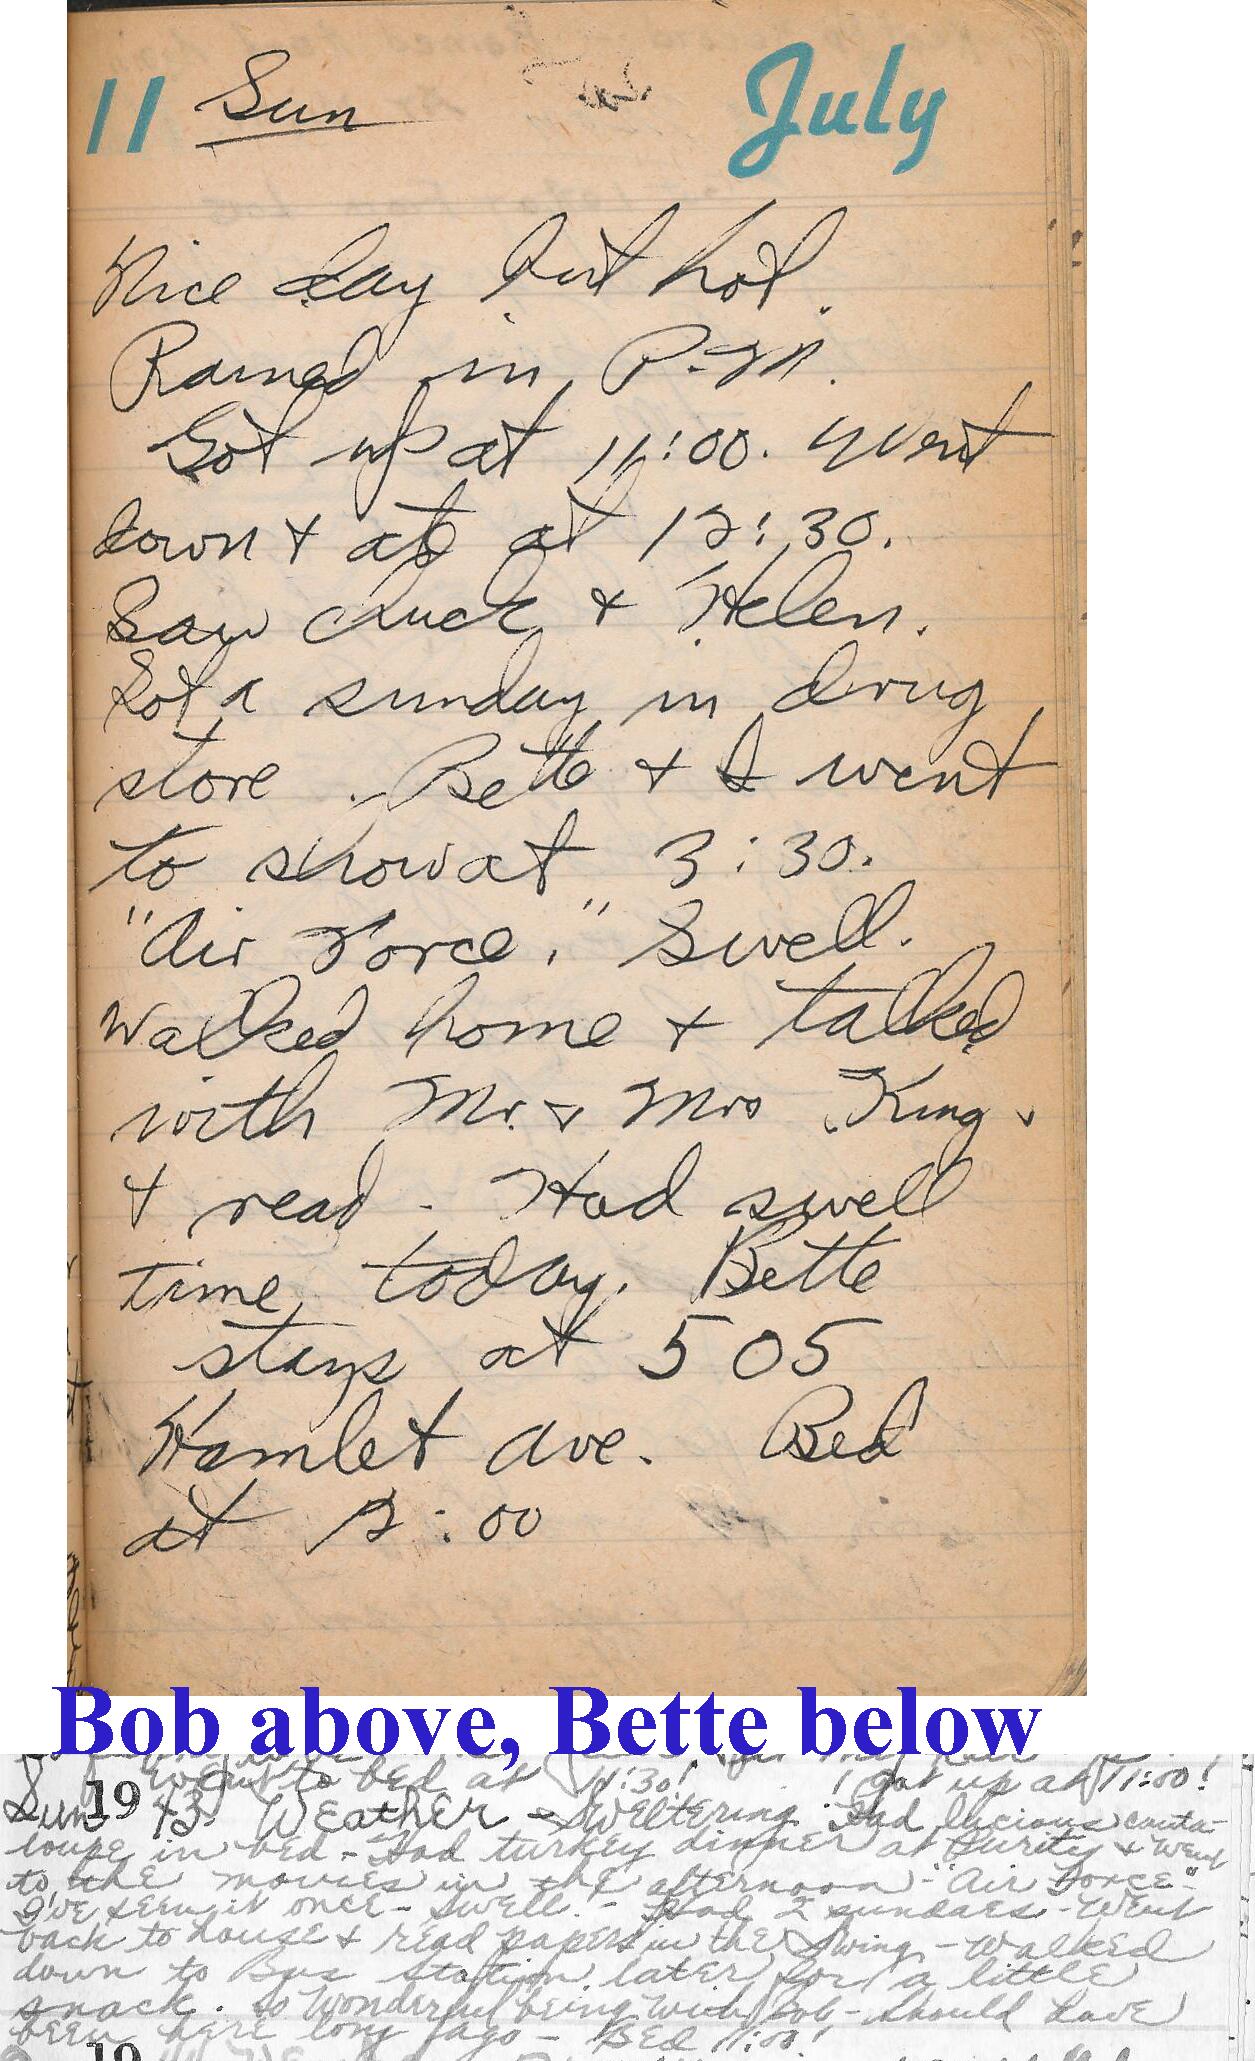 11 Sun July
Nice day but hot.
Rained in P.M.
Got up at 11:00. Went
down & ate at 12:30.
Saw Chuck & Helen.
Got a sunday in drug
store. Bette & I went
to show at 3:30.
"Air Force." Swell.
Walked home & talked
with Mr. & Mrs King
& read. Had swell
time today. Bette
stays at 505
Hamlet Ave. Bed
at 12:00
Bob above, Bette below
Went to bed at 11:30! I got up at 11:00!
19
Sun 43 Weather - Sweltering. Had lucious canta-
loupe in bed - Had turkey dinner at Purity & went
to the movies in the afternoon - "Air Force" -
I've seen it once - swell. - Had 2 sundaes - Went
back to house & read papers in the swing - Walked
down to Bus Station later for a little
snack. So wonderful being with Bob - should have
been here long ago - Bed 11:00!
19